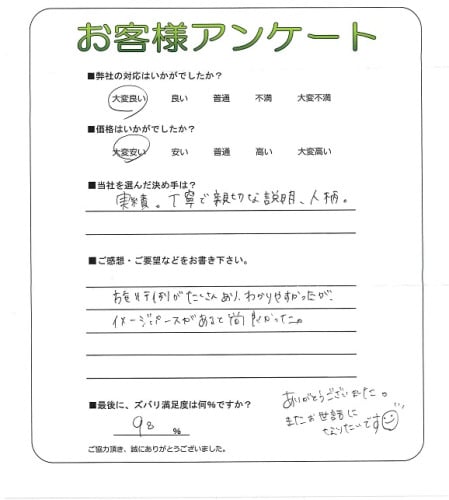 お客様アンケート
■弊社の対応はいかがでしたか?
大変良い 良い 普通 不満 大変不満
■価格はいかがでしたか?
大変安い 安い 普通 高い 大変高い
■当社を選んだ決め手は?
実績。丁寧で親切な説明、人柄。
■ご感想・ご要望などをお書き下さい。
がたくさんあり、わかりやすかったが、
イメージパースがあると尚良かった。
■最後に、ズバリ満足度は何%ですか?
98 %
ありがとうございました。
またお世話に
なりたいです
ご協力頂き、誠にありがとうございました。